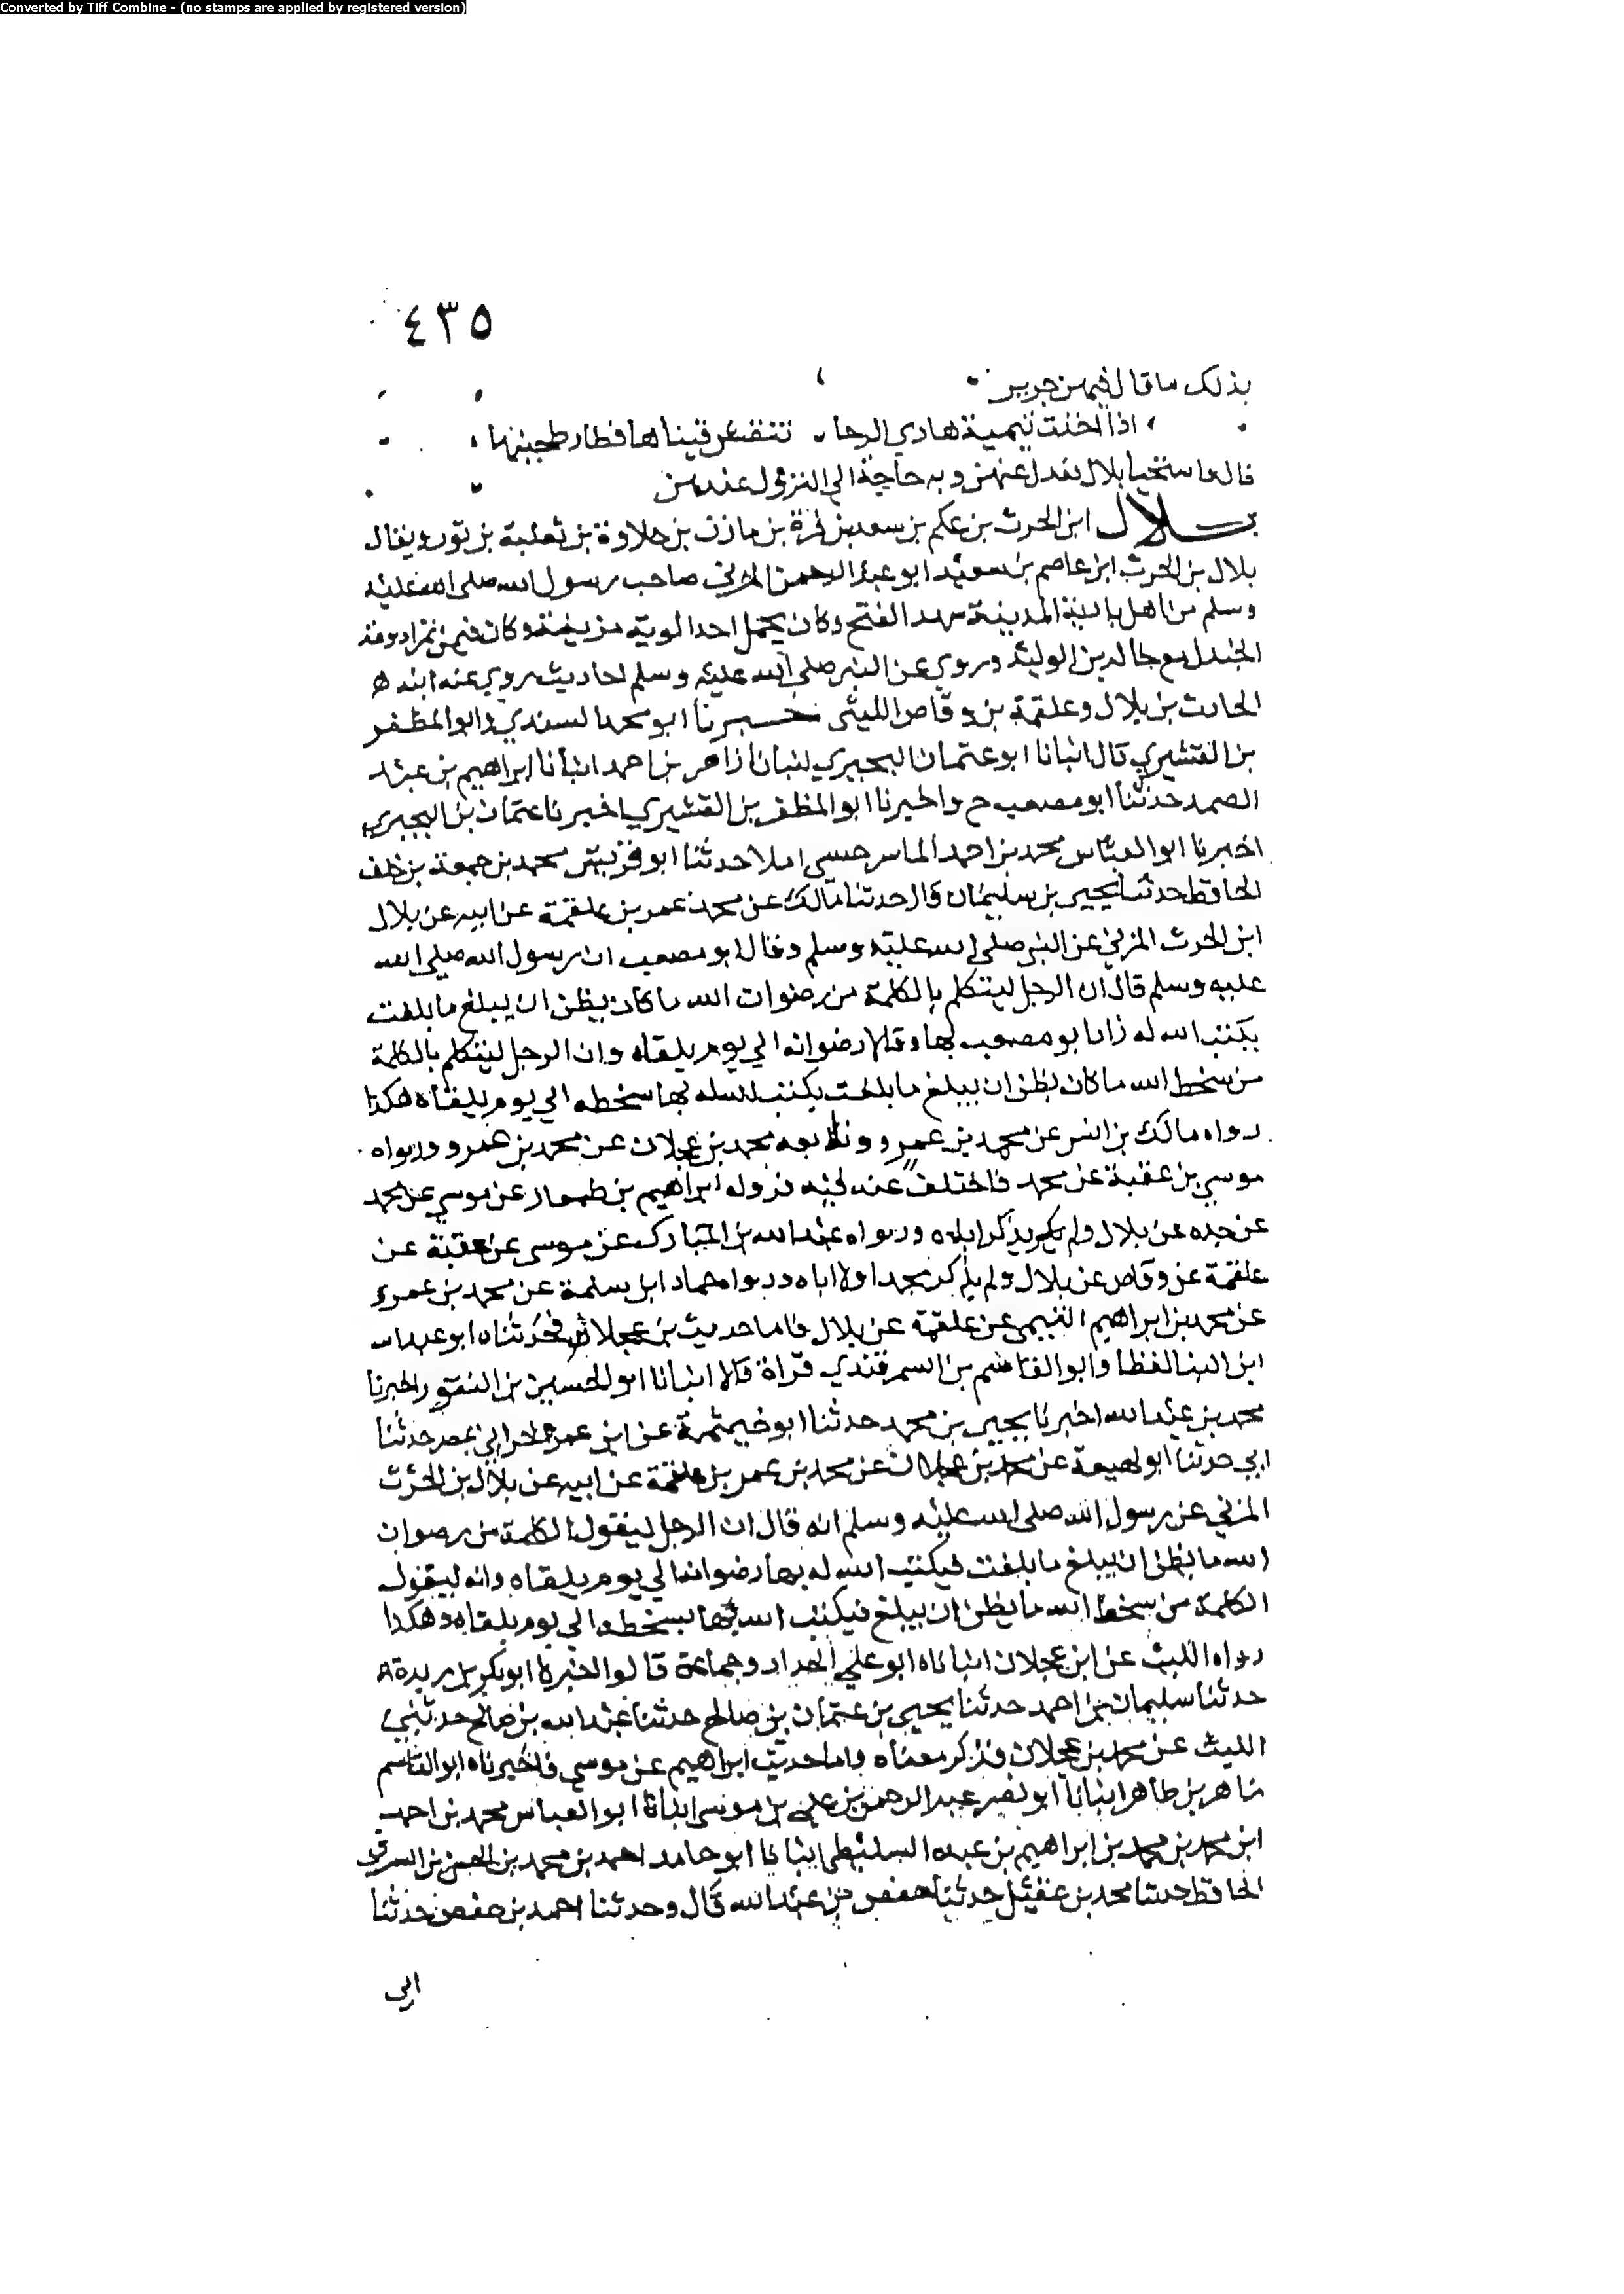 Converted by Tiff Combine - (no stamps are applied by registered version)
٤٣٥
بذلك ما قال فيهن جرير
اذا اخذت تيمية هادي الرحا تنفس قيناها فطار طحينها
قال فاستحيا بلال فعدل عنهن وبه حاجة الي النزول عندهن
بلال ابن الحرث بن عكم بن سعد بن قرة بن مازن بن حلاوة بن ثعلبة بن ثور ويقال
بلال بن الحرث ابن عاصم بن سعيد ابو عبد الرحمن المزني صاحب رسول الله صلي الله عليه
وسلم من اهل بادية المدينة شهد الفتح وكان يحمل احد الوية مزينة وكان فيمن غزا دومة
الجندل مع خالد بن الوليد وروي عن النبي صلي الله عليه وسلم احاديث روي عنه ابنه
الحارث بن بلال وعلقمة بن وقاص الليثي خبرنا ابو محمد السندي وابو المظفر
بن القشيري قال انبانا ابو عثمان البحيري انبانا زاهر بن احمد انبانا ابراهيم بن عبد
الصمد حدثنا ابو مصعب ح واخبرنا ابو المظفر بن القشيري اخبرنا عثمان بن البحيري
اخبرنا ابو العباس محمد بن احمد الماسرجسي املا حدثنا ابو قريش محمد بن جمعة بن خلف
الحافظ حدثنا يحيي بن سليمان قال حدثنا مالك عن محمد عمر بن علقمة عن ابيه عن بلال
ابن الحرث المزني عن النبي صلي الله عليه وسلم وقال ابو مصعب ان رسول الله صلي الله
عليه وسلم قال ان الرجل ليتكلم بالكلمة من رضوات الله ما كان يظن ان يبلغ ما بلغت
يكتب الله له زاد ابو مصعب بها وقالا رضوانه الي يوم يلقاه وان الرجل ليتكلم بالكلمة
من سخط الله ما كان يظن ان يبلغ ما بلغت يكتب الله له بها سخطه الي يوم يلقاه هكذا
رواه مالك بن انس عن محمد بن عمرو وتابعه محمد بن عجلان عن محمد بن عمرو ورواه
موسي بن عقبة عن محمد فاختلف عنه فيه فرواه ابراهيم بن طهمان عن موسي عن محمد
عن جده عن بلال ولم يذكر اباه ورواه عبد الله بن المبارك عن موسي عن عقبة عن
علقمة عن وقاص عن بلال ولم يذكر محمدا ولا اباه ورواه حماد ابن سلمة عن محمد بن عمرو
عن محمد بن ابراهيم التيمي عن علقمة عن بلال فاما حديث بن عجلان فحدثناه ابو عبد الله
ابن البنا لفظا وابو القاسم بن السمرقندي قراة قالا انبانا ابو الحسين بن النقور اخبرنا
محمد بن عبد الله اخبرنا يحيي بن محمد حدثنا ابو خيثمة عن ابن عمرو الحراني بمصر حدثنا
ابي حدثنا ابو لهيعة عن محمد بن عجلان عن محمد بن عمر بن علقمة عن ابيه عن بلال بن الحرث
المزني عن رسول الله صلي الله عليه وسلم انه قال ان الرجل ليقول الكلمة من رضوان
الله ما يظن ان يبلغ ما بلغت فيكتب الله له بها رضوانه الي يوم يلقاه وانه ليقول
الكلمة من سخط الله ما يظن ان يبلغ فيكتب الله بها بسخطه الي يوم يلقاه وهكذا
رواه الليث عن ابن عجلان انباناه ابو علي الحداد وجماعة قالوا اخبرنا ابو بكر بن ريدة
حدثنا سليمان بن احمد حدثنا يحيي بن عثمان بن صالح حدثنا عبد الله بن صالح حدثني
الليث عن محمد بن عجلان فذكر معناه واما حديث ابراهيم عن موسي فاخبرناه ابو القاسم
زاهر بن طاهر انبانا ابو نصر عبد الرحمن بن علي بن موسي انبانا ابو العباس محمد بن احمد
ابن محمد بن محمد بن ابراهيم بن عبده السليطي انبانا ابو حامد احمد بن محمد بن الحسن بن الشرقي
الحافظ حدثنا محمد بن عقيل حدثنا حفص بن عبد الله قال وحدثنا احمد بن حفص حدثنا
ابي